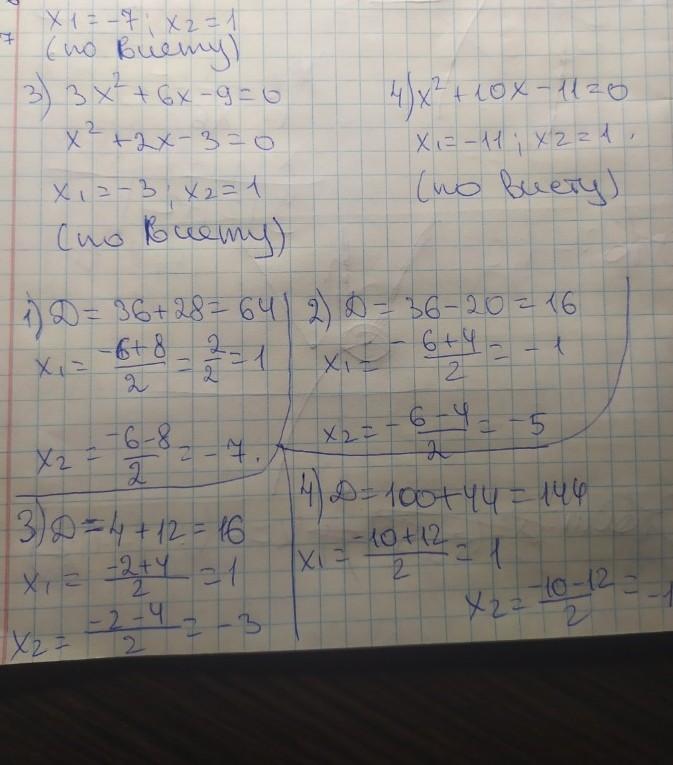 x1 = -7; x2 = 1
7
(по Виету)
3) 3x² + 6x - 9 = 0
x² + 2x - 3 = 0
x1 = -3; x2 = 1
(по Виету)
4) x² + 10x - 11 = 0
x1 = -11; x2 = 1.
(по Виету)
1) D = 36 + 28 = 64
x1 = (-6+8)/2 = 2/2 = 1
x2 = (-6-8)/2 = -7.
2) D = 36 - 20 = 16
x1 = (-6+4)/2 = -1
x2 = (-6-4)/2 = -5
3) D = 4 + 12 = 16
x1 = (-2+4)/2 = 1
x2 = (-2-4)/2 = -3
4) D = 100 + 44 = 144
x1 = (-10+12)/2 = 1
x2 = (-10-12)/2 = -1